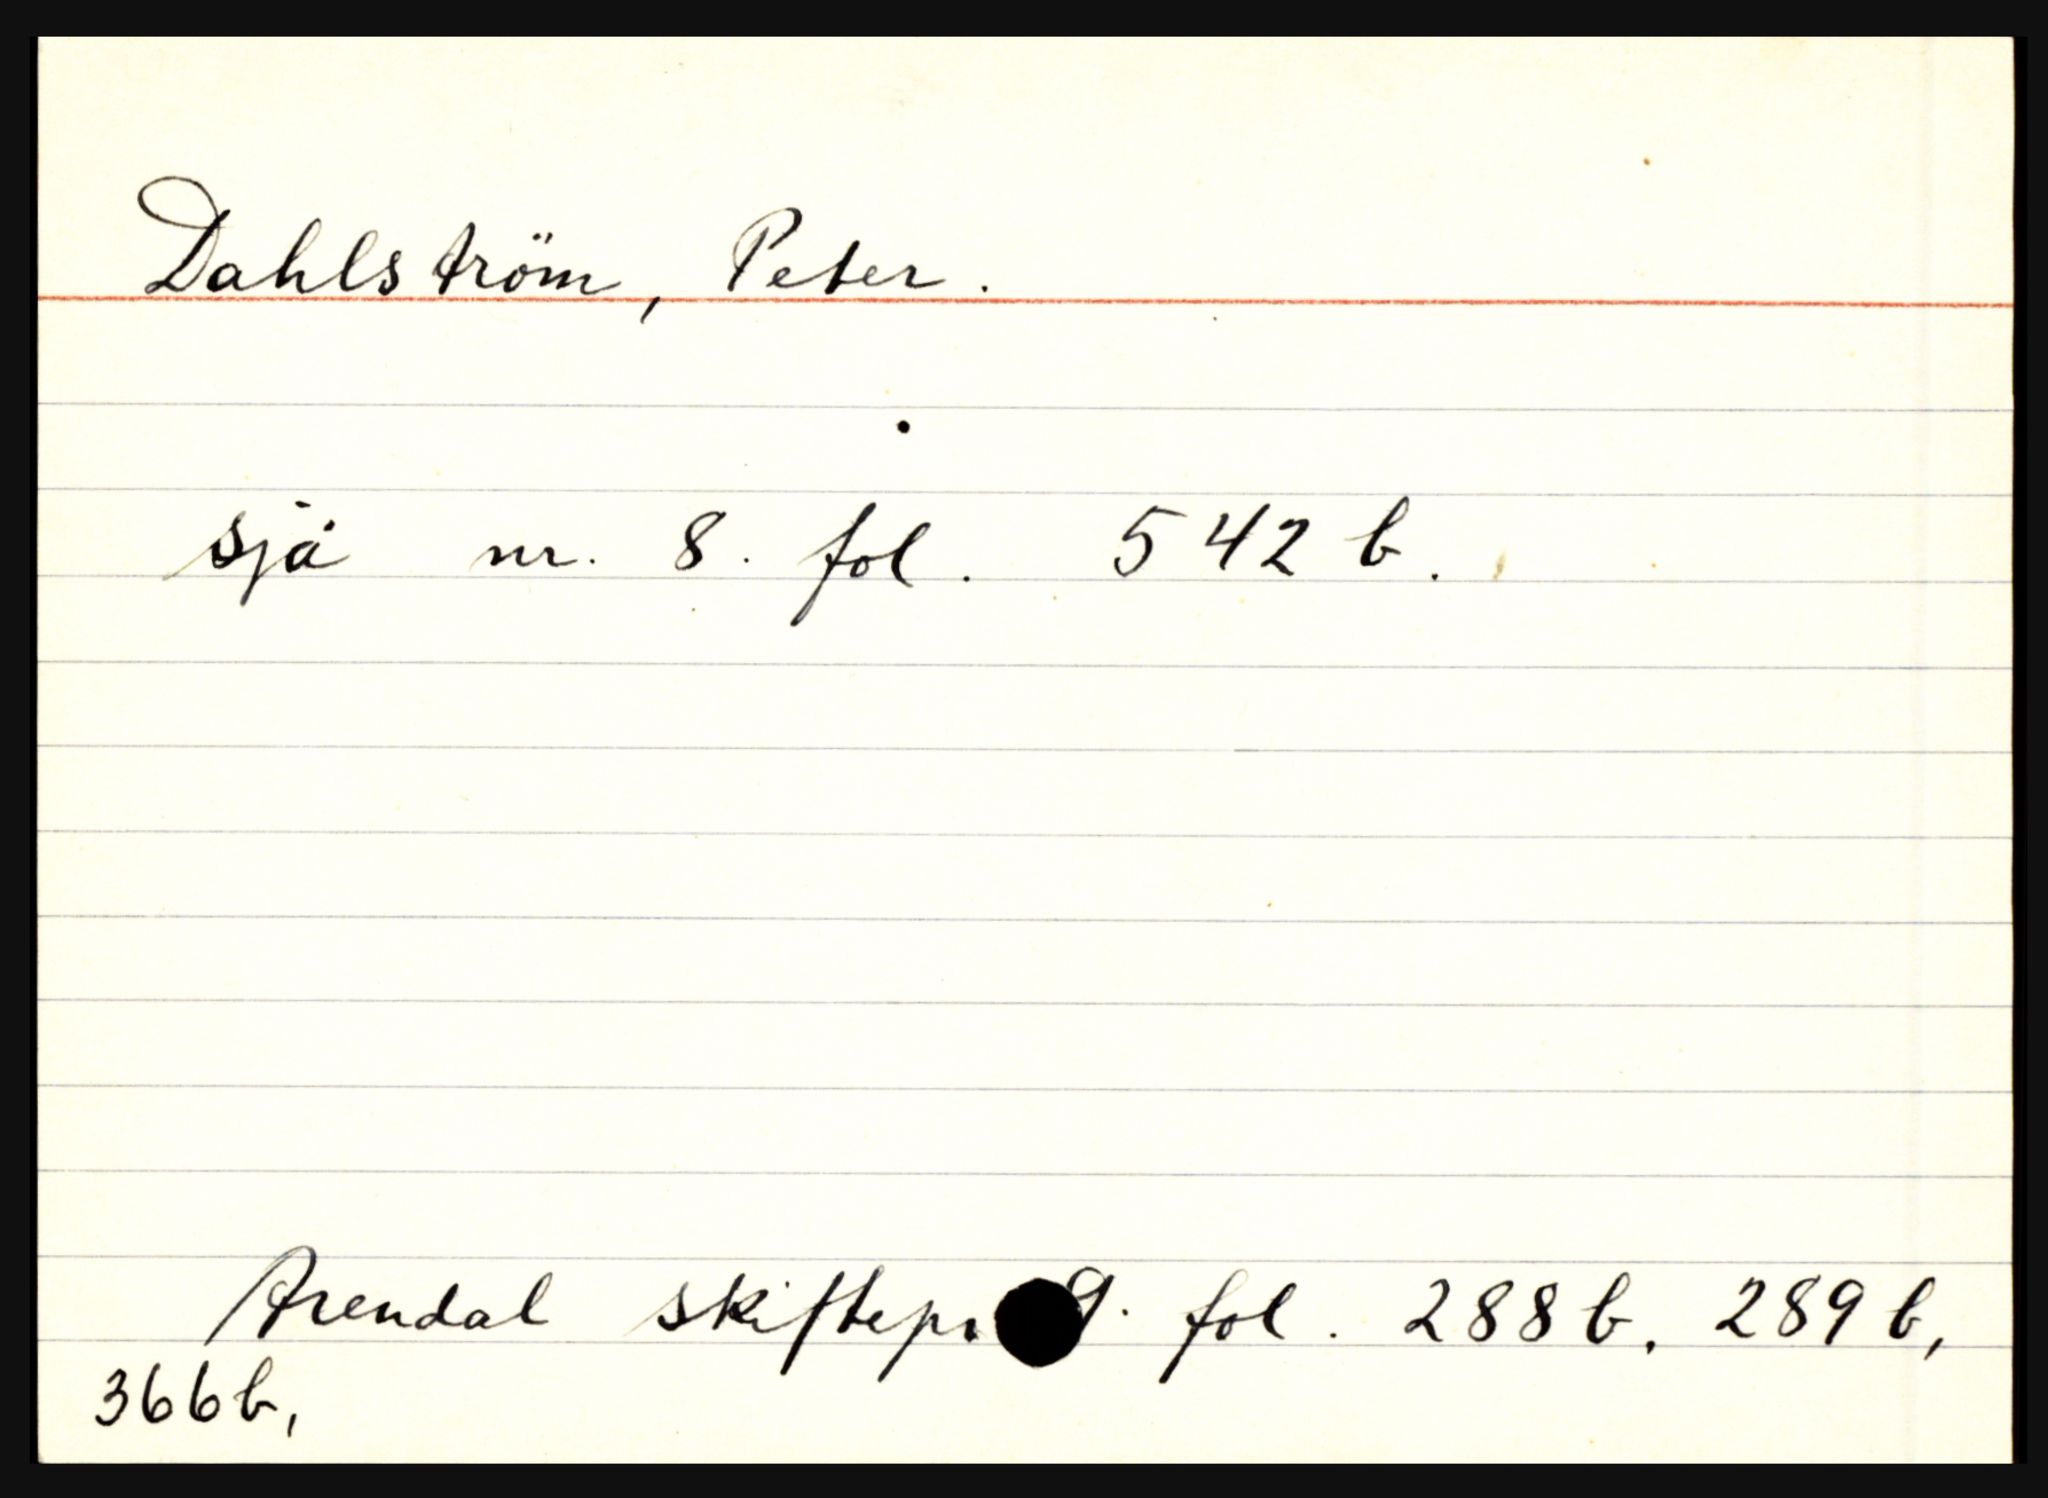 Dahlström, Peter.
sjå nr. 8. fol. 542 b.
Arendal skiftepr 9. fol. 288 b. 289 b,
366 b,